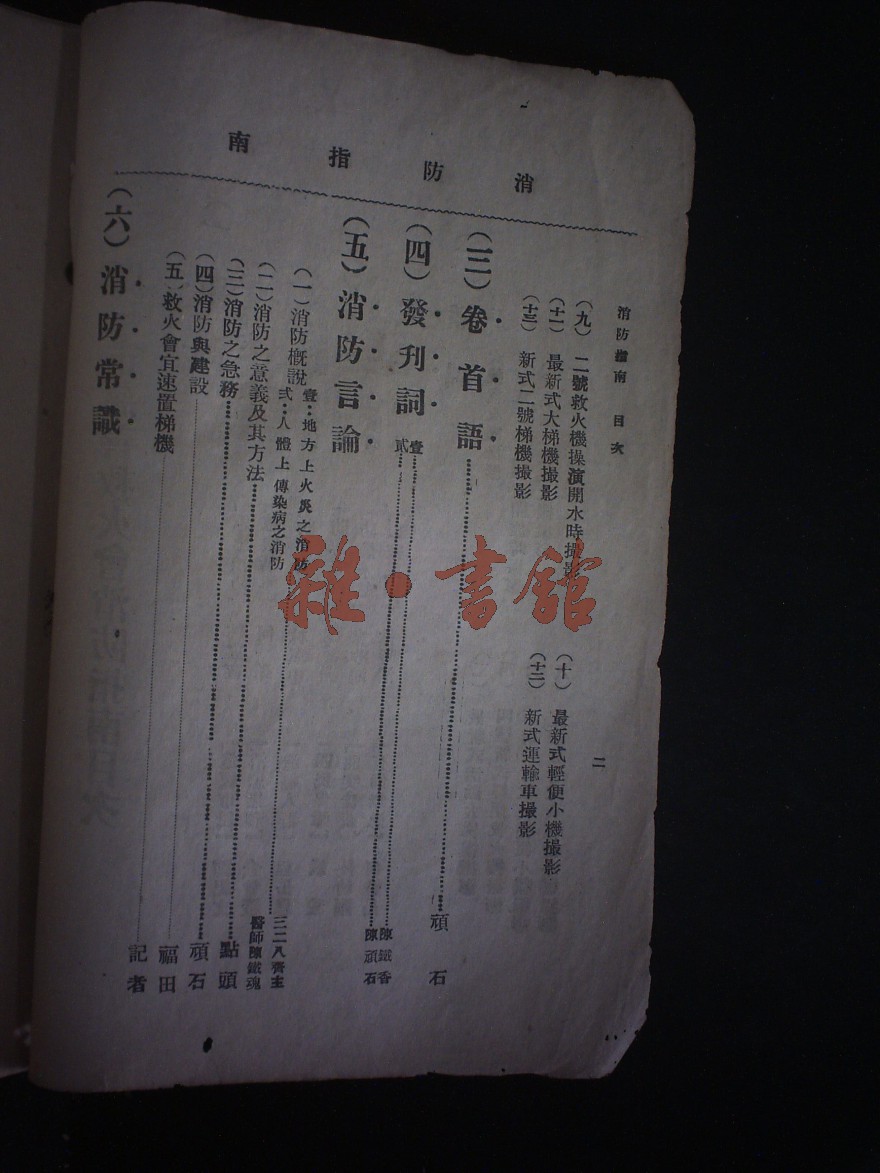 消防指南
消防指南 目次 二
（九）二號救火機操演開水時撮影
（十）最新式輕便小機撮影
（十一）最新式大梯機撮影
（十二）新式運輸車撮影
（十三）新式二號梯機撮影
（三）卷首語 頑石
（四）發刊詞
壹 陳鐵香
貳 陳頑石
（五）消防言論
（一）消防概說
壹：地方上火災之消防
弍：人體上傳染病之消防
三二八齊主
（二）消防之意義及其方法 醫師陳鐵魂
（三）消防之急務 點頭
（四）消防與建設 頑石
（五）救火會宜速置梯機 福田
（六）消防常識 記者
雜·書館